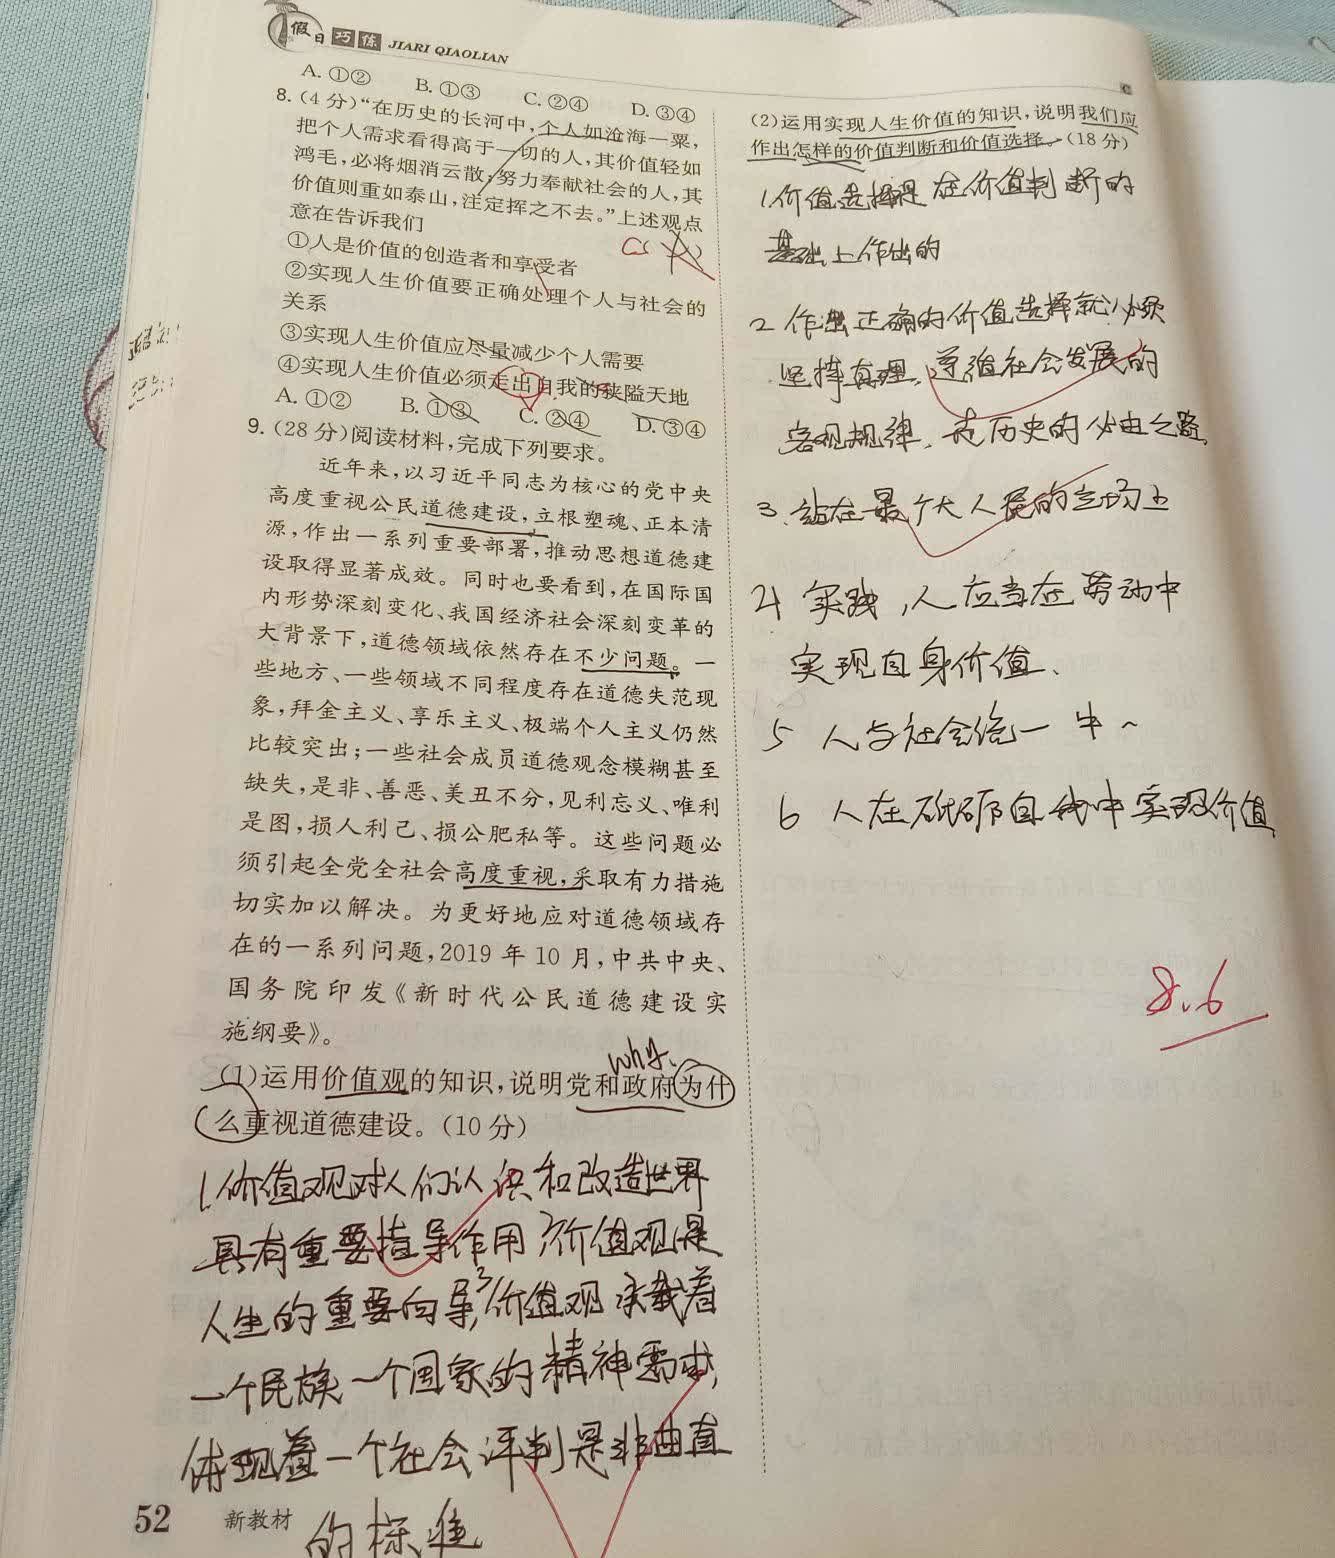 假日巧练 JIARI QIAOLIAN
A. ①② B. ①③ C. ②④ D. ③④
8. (4 分)“在历史的长河中,个人如沧海一粟,
把个人需求看得高于一切的人,其价值轻如
鸿毛,必将烟消云散;努力奉献社会的人,其
价值则重如泰山,注定挥之不去。”上述观点
意在告诉我们
①人是价值的创造者和享受者
②实现人生价值要正确处理个人与社会的
关系
③实现人生价值应尽量减少个人需要
④实现人生价值必须走出自我的狭隘天地
A. ①② B. ①③ C. ②④ D. ③④
9. (28 分)阅读材料,完成下列要求。
近年来,以习近平同志为核心的党中央
高度重视公民道德建设,立根塑魂、正本清
源,作出一系列重要部署,推动思想道德建
设取得显著成效。同时也要看到,在国际国
内形势深刻变化、我国经济社会深刻变革的
大背景下,道德领域依然存在不少问题。一
些地方、一些领域不同程度存在道德失范现
象,拜金主义、享乐主义、极端个人主义仍然
比较突出;一些社会成员道德观念模糊甚至
缺失,是非、善恶、美丑不分,见利忘义、唯利
是图,损人利己、损公肥私等。这些问题必
须引起全党全社会高度重视,采取有力措施
切实加以解决。为更好地应对道德领域存
在的一系列问题,2019 年 10 月,中共中央、
国务院印发《新时代公民道德建设实
施纲要》。
why.
(1)运用价值观的知识,说明党和政府为什
么重视道德建设。(10 分)
1.价值观对人们认识和改造世界
具有重要指导作用 2价值观是
人生的重要向导,3价值观承载着
一个民族一个国家的精神需求,
体现着一个社会评判是非曲直
的标准
52 新教材
(2)运用实现人生价值的知识,说明我们应
作出怎样的价值判断和价值选择。(18 分)
1.价值选择是在价值判断的
基础上作出的
2 作出正确的价值选择就必须
坚持真理、遵循社会发展的
客观规律、走历史的必由之路
3、站在最广大人民的立场上
4 实践,人应当在劳动中
实现自身价值、
5 人与社会统一中~
6 人在砥砺自我中实现价值
8.6